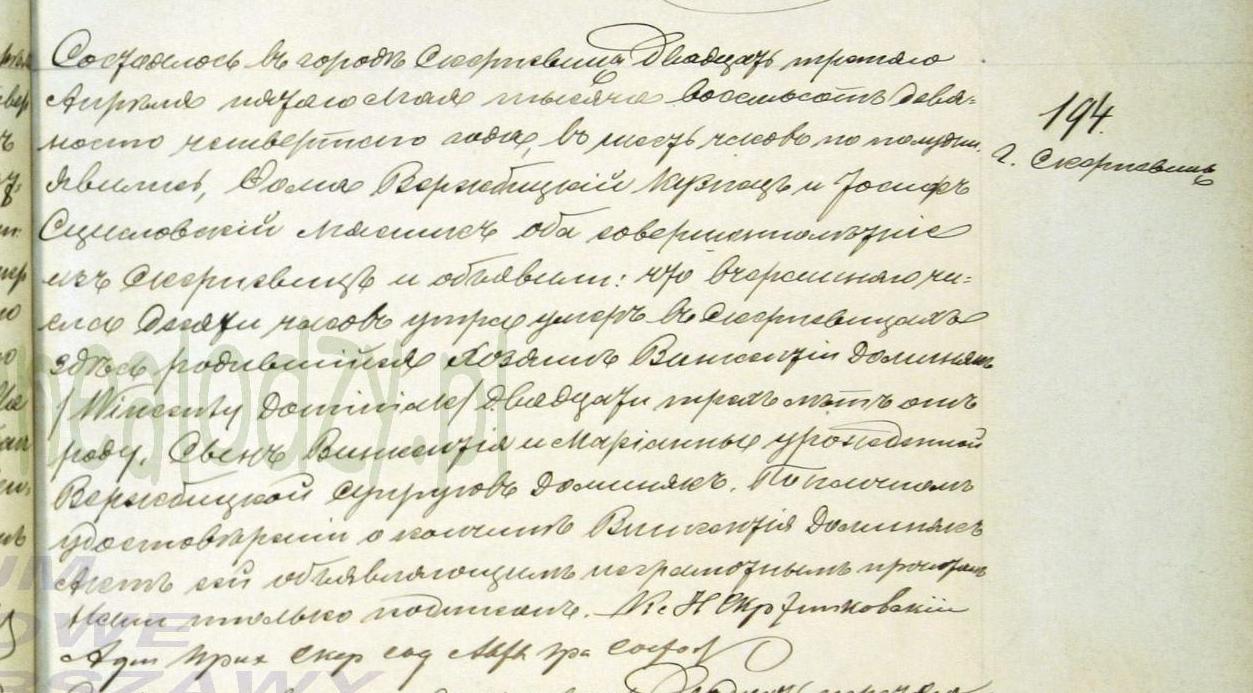 Состоялось въ городѣ Скерневицахъ Двадцать третьяго
Апрѣля пятаго Мая тысяча восемьсотъ девя-
носто четвертого года, въ шесть часовъ по полудни
194.
г. Скерневицы
явились, Ѳома Вержбицкій Кузнецъ и Іосифъ
Сцисловскій Мясникъ оба совершеннолѣтніе
изъ Скерневицъ и объявили: что вчерашняго чи-
сла десяти часовъ утра умеръ въ Скерневицахъ
здѣсь родившійся Хозяинъ Викентій Доминякъ
/Wincenty Dominiak/ Двадцати трехъ лѣтъ отъ
роду, Сынъ Викентія и Маріанны урожденной
Вержбицкой супруговъ Доминякъ. По личномъ
удостовѣреніи о кончинѣ Викентія Доминякъ
Актъ сей объявляющимъ неграмотнымъ прочитанъ
Нами только подписанъ. Кс Н Скржитковскій
Адм Прих Скер сод Акты гра Сост